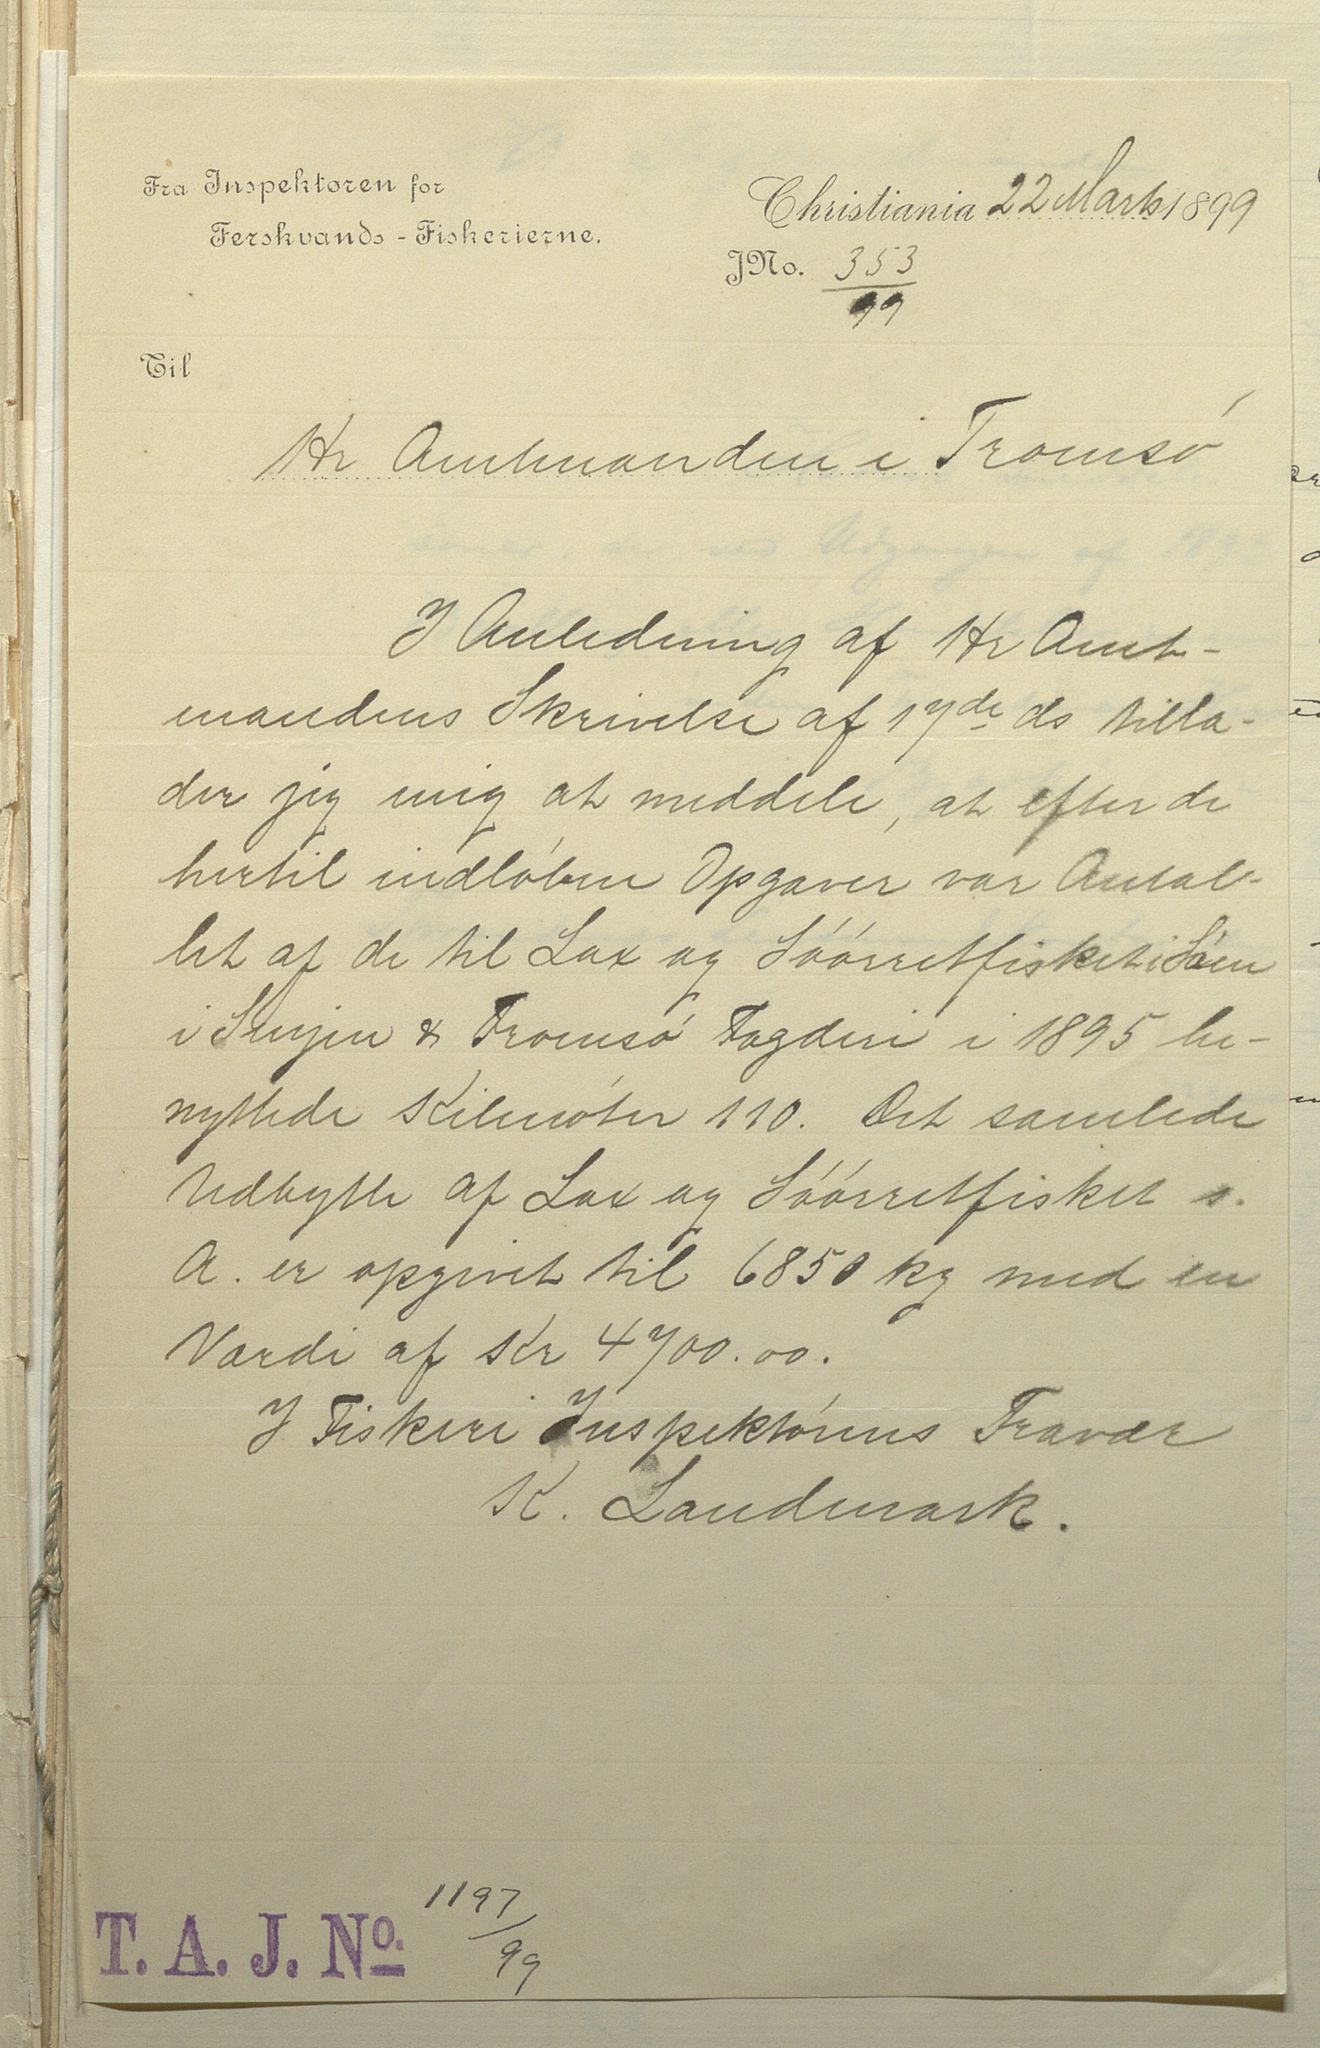 Fra Inspektoren for
Ferskvands-Fiskerierne.
Christiania 22 Marts 1899
JNo. 353
99
Til
Hr Amtmanden i Tromsö
I Anledning af Hr Amt-
mandens Skrivelse af 17de ds tilla-
der jeg mig at meddele, at efter de
hertil indløbne Opgaver var Antal-
let af de til Lax og Søørretfisket i Søen
i Senjen & Tromsø Fogderi i 1895 be-
nyttede Kilenøter 110. Det samlede
Udbytte af Lax og Søørretfisket s.
A. er opgivet til 6850 kg med en
Værdi af Kr 4700.00.
I Fiskeri Inspektørens Fravær
K. Landmark.
T. A. J. No. 1197
99